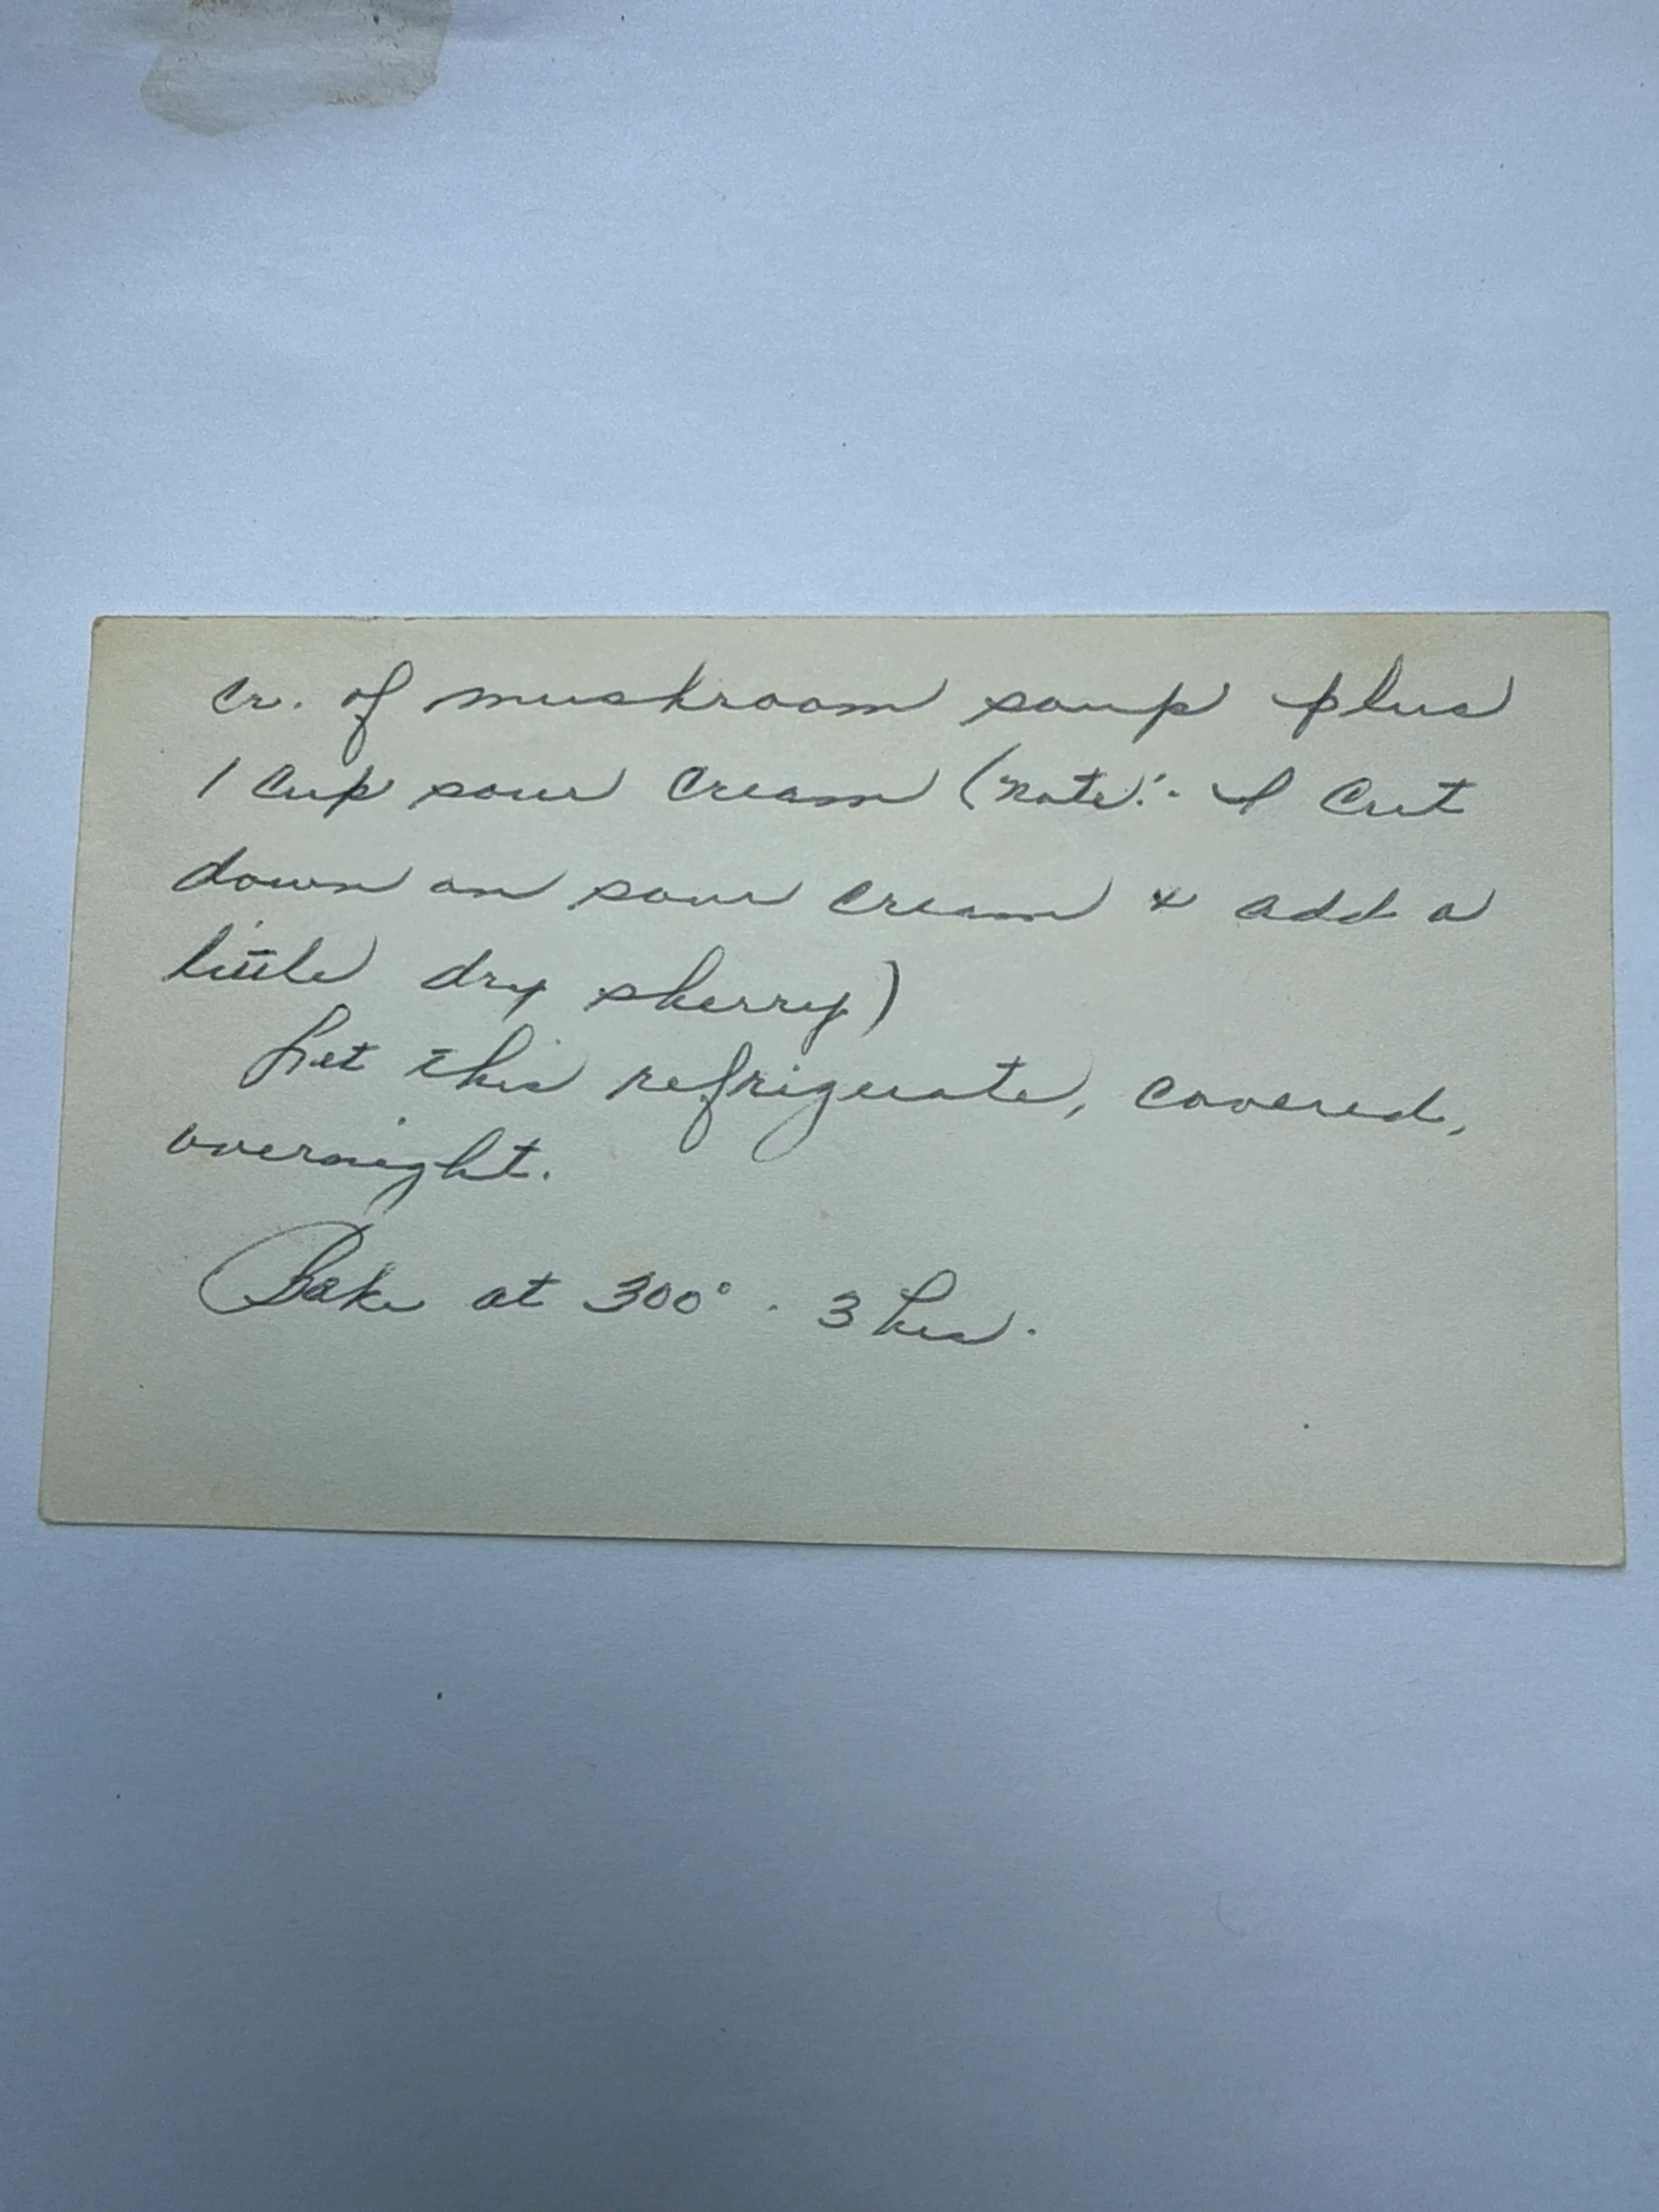 Cr. of mushroom soup plus
1 cup sour cream (note:- I cut
down on sour cream & add a
little dry sherry)
Let this refrigerate, covered,
overnight.
Bake at 300° - 3 hrs.